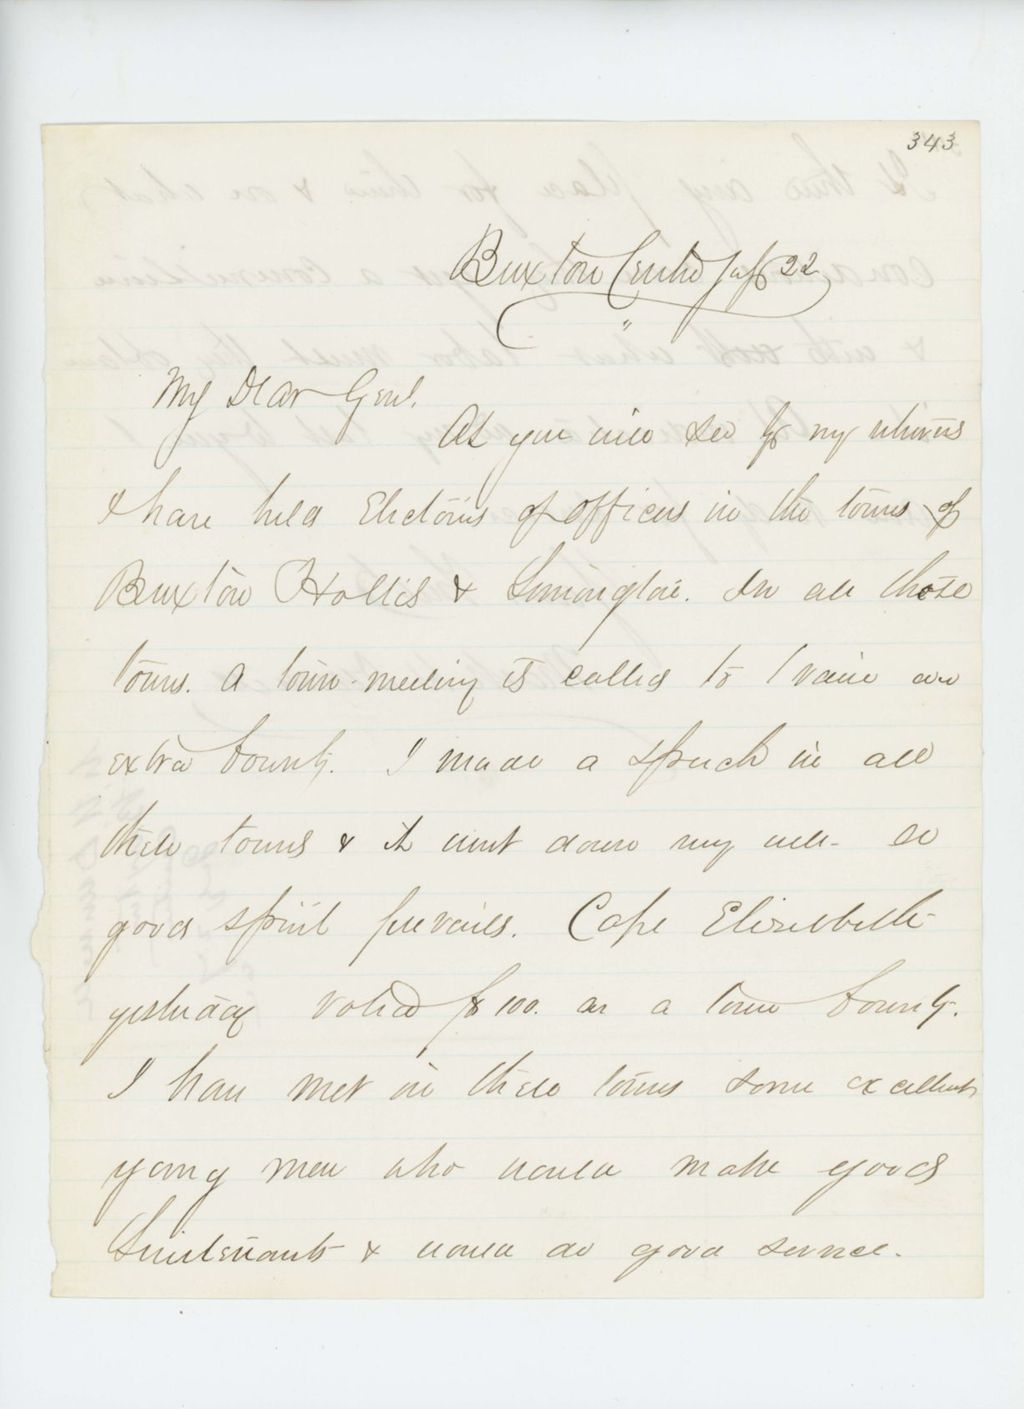 343
Buxton Centre July 22
"
My Dear Genl.
As you will see by my returns
I have held Elections of officers in the towns of
Buxton Hollis & Limington. In all these
towns. A town-meeting is called to raise an
extra bounty. I made a speech in all
these towns & it went down very well- a
good spirit prevails. Cape Elizabeth
yesterday voted $100. as a town bounty.
I have met in these towns some excellent
young men who would make good
Lieutenants & would do good service.